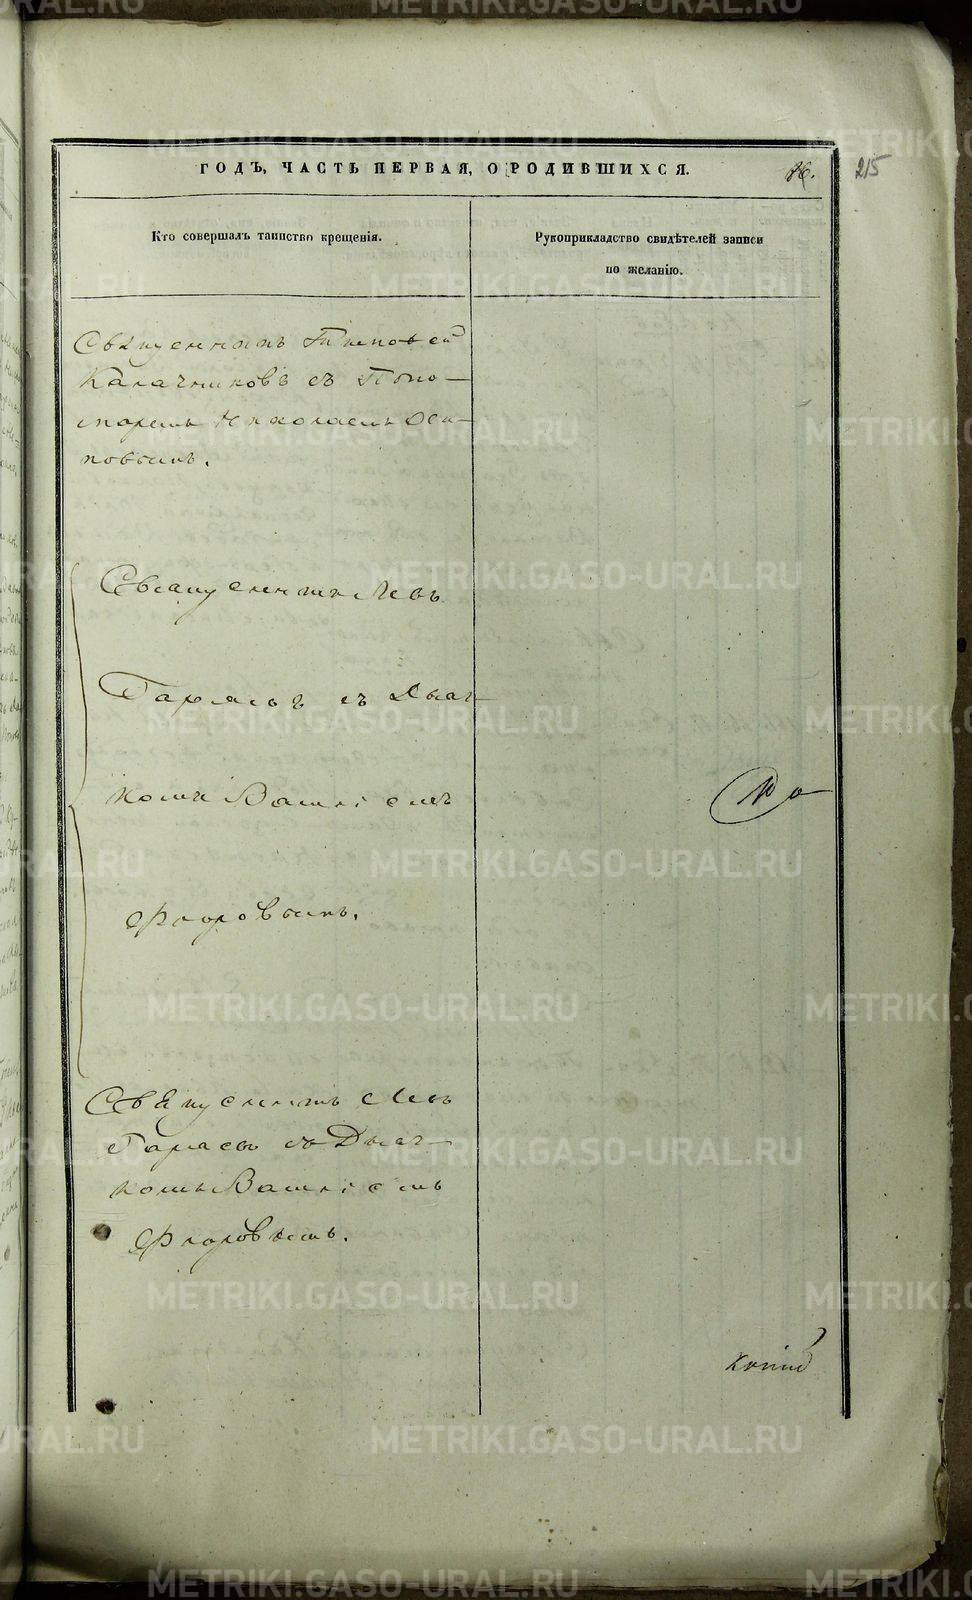 ГОДЪ, ЧАСТЬ ПЕРВАЯ, О РОДИВШИХСЯ.
215
Кто совершалъ таинство крещенія.
Рукоприкладство свидѣтелей записи
по желанію.
Священникъ Тимофей
Калачниковъ съ Поно-
маремъ Николаемъ Оси-
повымъ.
Священникъ Левъ
Гарясовъ съ Дьяч-
комъ Василіемъ
Флоровымъ.
Священникъ Левъ
съ Дьяч-
комъ Василіемъ
Флоровымъ.
METRIKI.GASO-URAL.RU